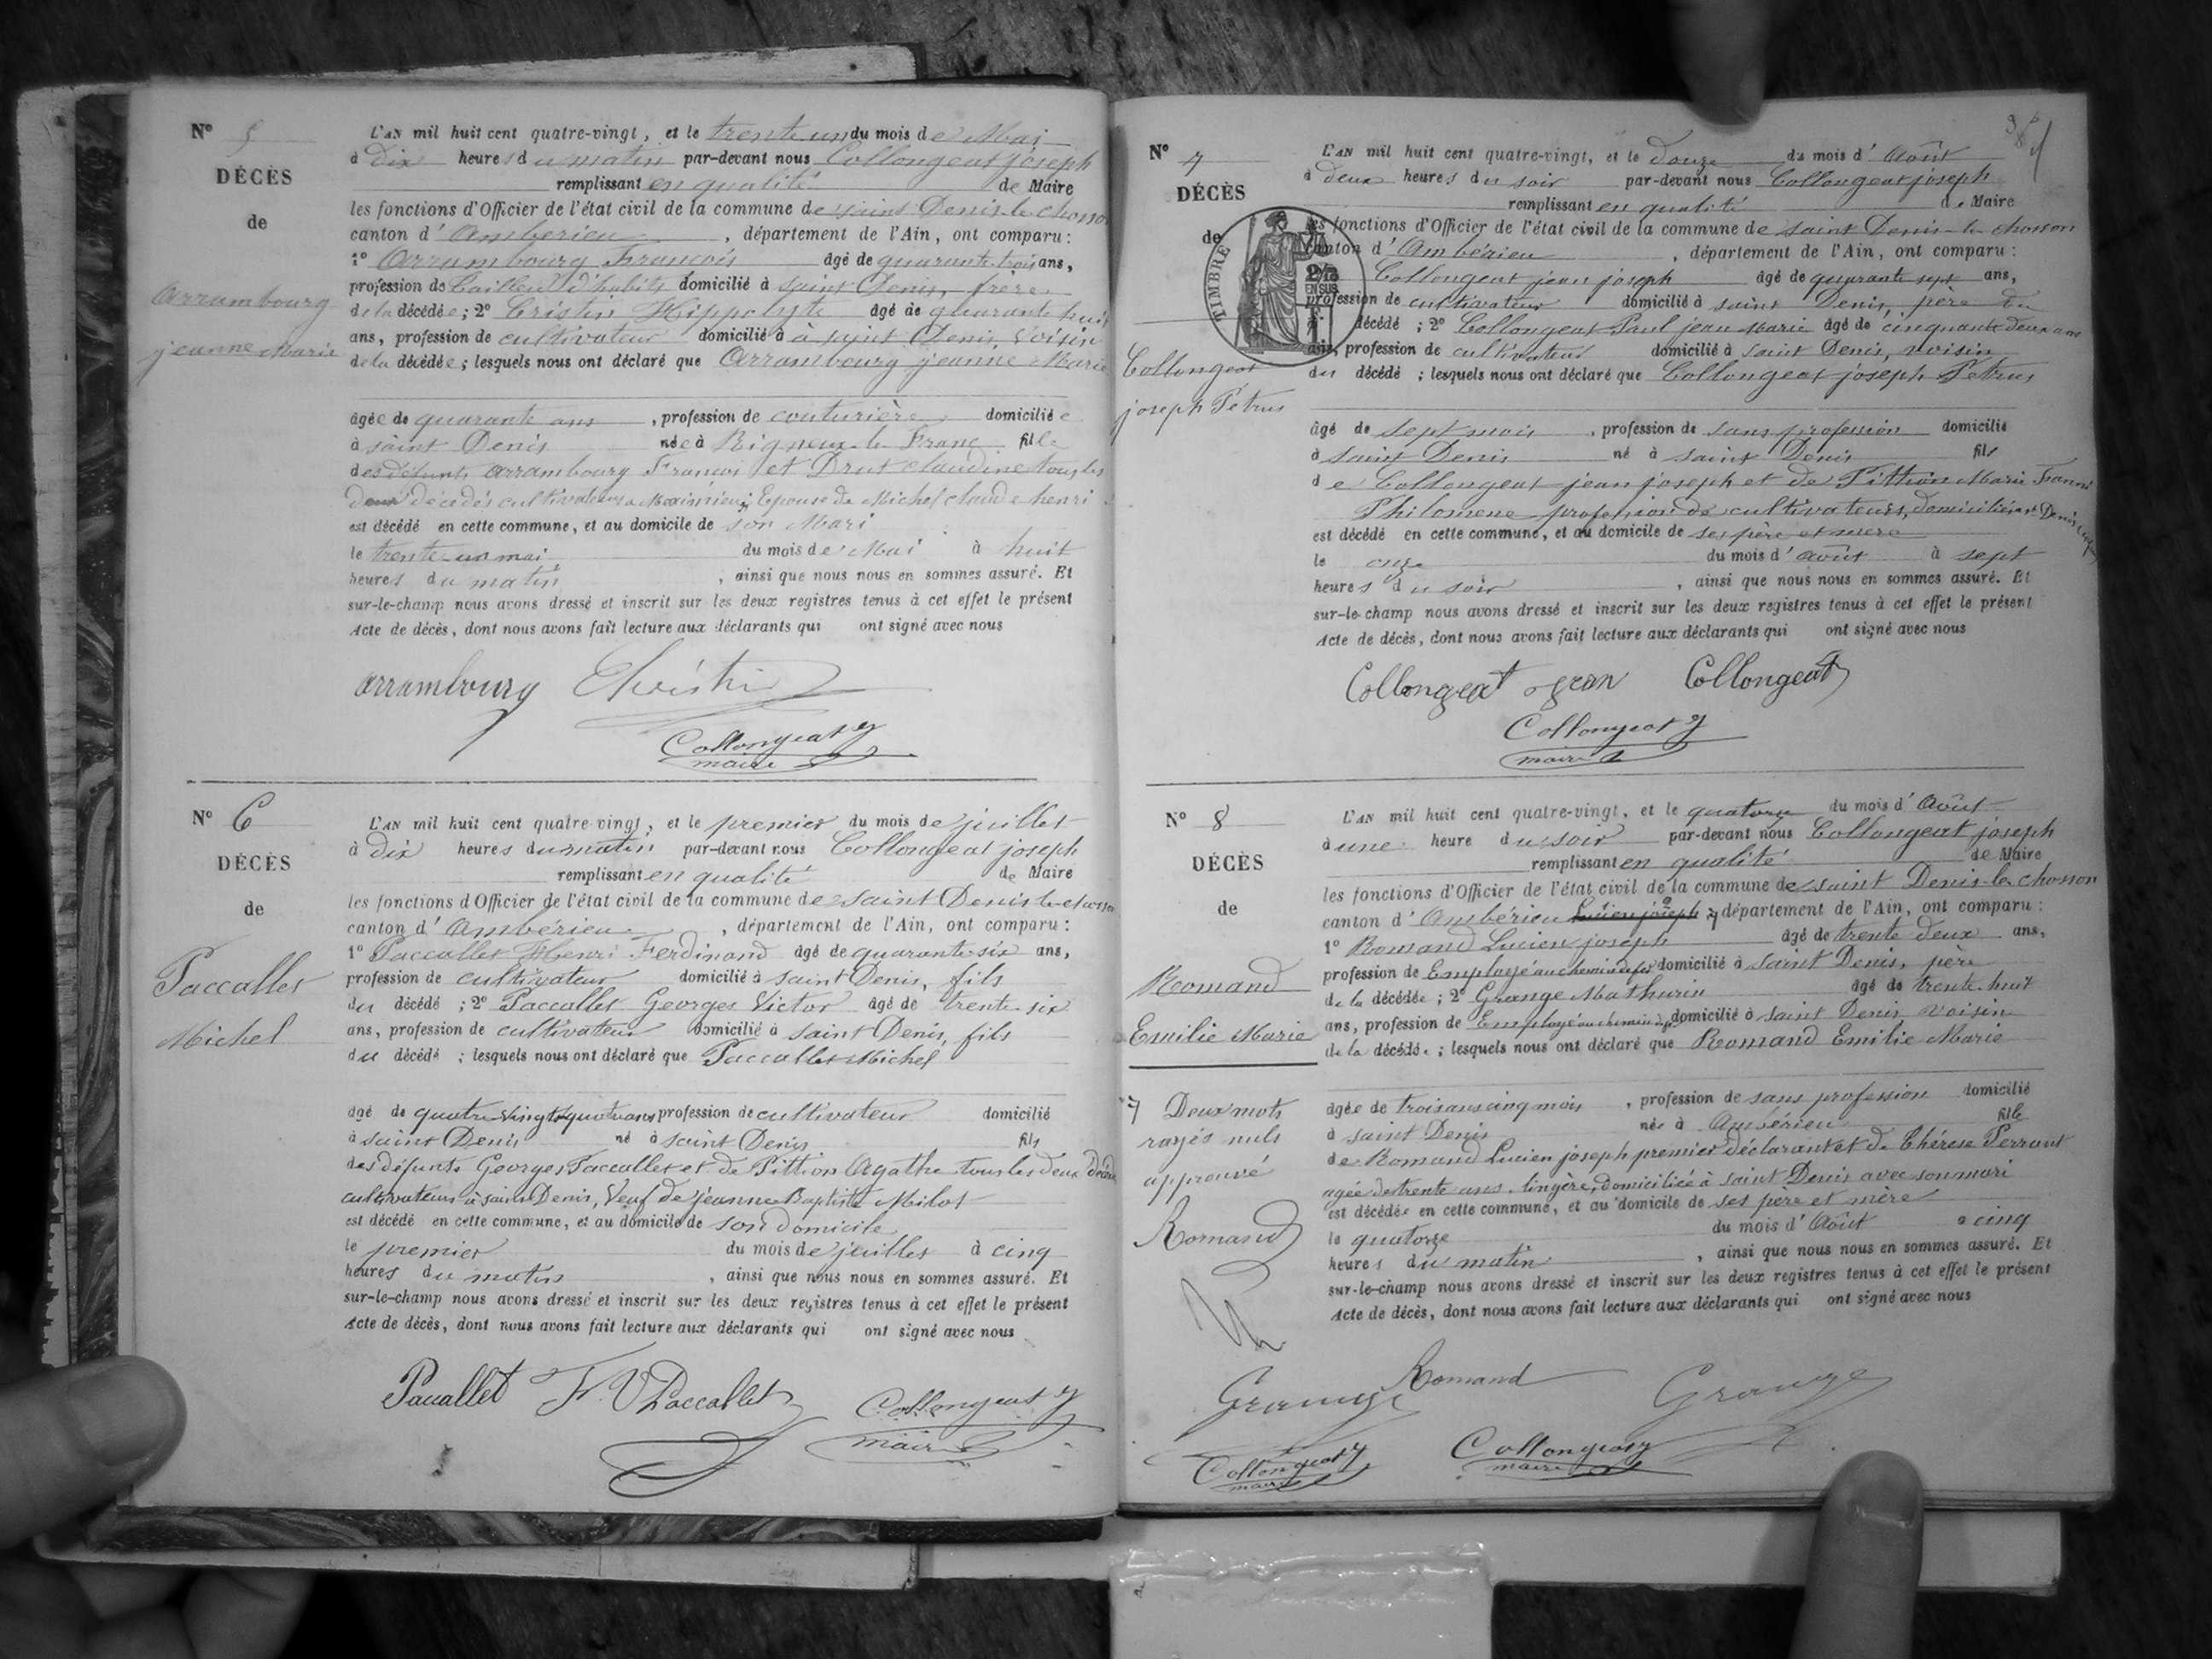 N° 5
DÉCÈS
de
Arrambourg
jeanne Marie
L'AN mil huit cent quatre-vingt, et le trente un du mois de Mai
à dix heures du matin par-devant nous Collongeat joseph
remplissant en qualité de Maire
les fonctions d'Officier de l'état civil de la commune de saint Denis-le-chosson
canton d'Ambérieu, département de l'Ain, ont comparu :
1° Arrambourg François âgé de quarante-trois ans,
profession de Tailleur d'habits domicilié à saint Denis, frère
de la décédée ; 2° Cristin Hippolyte âgé de quarante huit
ans, profession de cultivateur domicilié à à saint Denis, voisin
de la décédée ; lesquels nous ont déclaré que Arrambourg jeanne Marie
âgée de quarante ans, profession de couturière domiciliée
à saint Denis née à Rigneux-le-Franc fille
des défunts Arrambourg François et Drut claudine tous les
deux décédés cultivateurs à ; Epouse de Michel claude henri
est décédé en cette commune, et au domicile de son Mari
le trente-un mai du mois de Mai à huit
heures du matin, ainsi que nous nous en sommes assuré. Et
sur-le-champ nous avons dressé et inscrit sur les deux registres tenus à cet effet le présent
Acte de décès, dont nous avons fait lecture aux déclarants qui ont signé avec nous
arrambourg Christin
Collongeat j
maire
N° 6
DÉCÈS
de
Paccallet
Michel
L'AN mil huit cent quatre-vingt, et le premier du mois de juillet
à dix heures du matin par-devant nous Collongeat joseph
remplissant en qualité de Maire
les fonctions d'Officier de l'état civil de la commune de saint Denis-le-chosson
canton d'Ambérieu, département de l'Ain, ont comparu :
1° Paccallet Henri Ferdinand âgé de quarante-six ans,
profession de cultivateur domicilié à saint Denis, fils
du décédé ; 2° Paccallet Georges Victor âgé de trente-six
ans, profession de cultivateur domicilié à saint Denis, fils
du décédé ; lesquels nous ont déclaré que Paccallet Michel
âgé de quatre-vingt-quatre ans profession de cultivateur domicilié
à saint Denis né à saint Denis fils
des défunts Georges Paccallet et de Pittion Agathe tous les deux décédés
cultivateurs à saint Denis, Veuf de jeanne Baptiste Milot
est décédé en cette commune, et au domicile de son domicile
le premier du mois de juillet à cinq
heures du matin, ainsi que nous nous en sommes assuré. Et
sur-le-champ nous avons dressé et inscrit sur les deux registres tenus à cet effet le présent
Acte de décès, dont nous avons fait lecture aux déclarants qui ont signé avec nous
Paccallet F. V Paccallet Collongeat j
maire
N° 7
DÉCÈS
de
Collongeat
joseph Pétrus
TIMBRE
2/10
EN SUS
L'AN mil huit cent quatre-vingt, et le douze du mois d'Août
à deux heures du soir par-devant nous Collongeat joseph
remplissant en qualité de Maire
les fonctions d'Officier de l'état civil de la commune de saint Denis-le-chosson
canton d'Ambérieu, département de l'Ain, ont comparu :
Collongeat jean joseph âgé de quarante sept ans,
profession de cultivateur domicilié à saint Denis, père du
décédé ; 2° Collongeat Paul jean Marie âgé de cinquante deux ans
ans, profession de cultivateur domicilié à saint Denis, voisin
du décédé ; lesquels nous ont déclaré que Collongeat joseph Pétrus
âgé de sept mois, profession de sans profession domicilié
à saint Denis né à saint Denis fils
de Collongeat jean joseph et de Pittion Marie
Philomène profession de cultivateurs, domiciliés
est décédé en cette commune, et au domicile de ses père et mère
le onze du mois d'août à sept
heures du soir, ainsi que nous nous en sommes assuré. Et
sur-le-champ nous avons dressé et inscrit sur les deux registres tenus à cet effet le présent
Acte de décès, dont nous avons fait lecture aux déclarants qui ont signé avec nous
Collongeat jean Collongeat
Collongeat j
maire
N° 8
DÉCÈS
de
Romand
Emilie Marie
Deux mots
rayés nuls
approuvé
Romand
Grange
Collongeat j
maire
L'AN mil huit cent quatre-vingt, et le quatorze du mois d'Août
à une heure du soir par-devant nous Collongeat joseph
remplissant en qualité de Maire
les fonctions d'Officier de l'état civil de la commune de saint Denis-le-chosson
canton d'Ambérieu Lucien joseph, département de l'Ain, ont comparu :
1° Romand Lucien joseph âgé de trente deux ans,
profession de Employé au chemin de fer domicilié à saint Denis, père
de la décédée ; 2° Grange Mathurin âgé de trente-huit
ans, profession de Employé au chemin de fer domicilié à saint Denis voisin
de la décédée ; lesquels nous ont déclaré que Romand Emilie Marie
âgée de trois ans cinq mois, profession de sans profession domicilié
à saint Denis née à Ambérieu fille
de Romand Lucien joseph premier déclarant et de Thérèse Perraut
agée de trente ans, lingère, domiciliée à saint Denis avec son mari
est décédée en cette commune, et au domicile de ses père et mère
le quatorze du mois d'Août à cinq
heures du matin, ainsi que nous nous en sommes assuré. Et
sur-le-champ nous avons dressé et inscrit sur les deux registres tenus à cet effet le présent
Acte de décès, dont nous avons fait lecture aux déclarants qui ont signé avec nous
Romand Grange
Collongeat j
maire